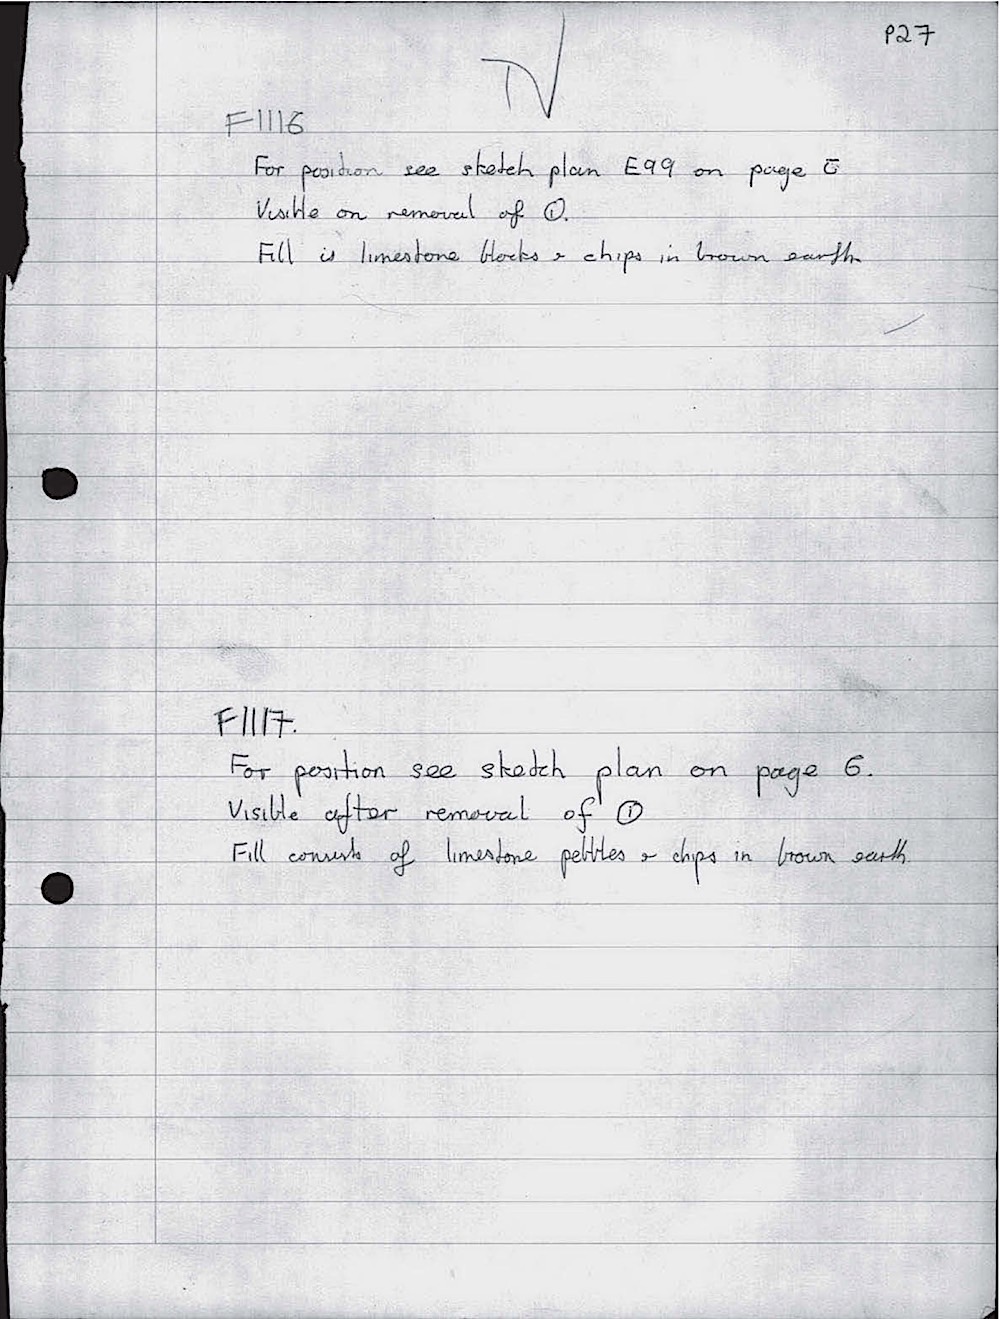 P27
TV
F1116
For position see sketch plan E99 on page 6
Visible on removal of ①.
Fill is limestone blocks & chips in brown earth
F1117.
For position see sketch plan on page 6.
Visible after removal of ①
Fill consists of limestone pebbles & chips in brown earth.